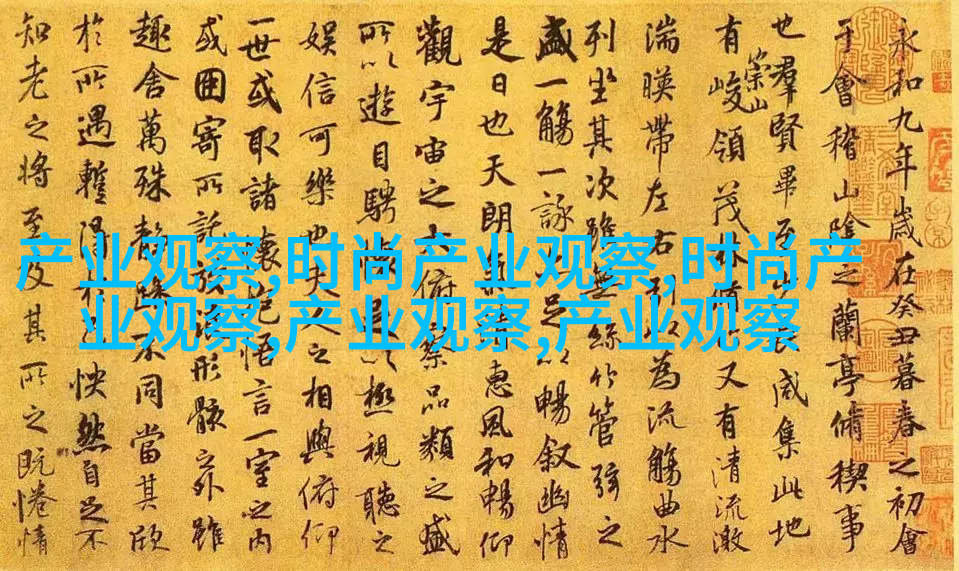 永和九年歳在癸丑暮春之初會
于會稽山陰之蘭亭脩稧事
也羣賢畢至少長咸集此地
有崇山峻領茂林脩竹又有清流激
湍暎帶左右引以為流觴曲水
列坐其次雖無絲竹管弦之
盛一觴一詠亦足以暢叙幽情
是日也天朗氣清惠風和暢仰
觀宇宙之大俯察品類之盛
所以遊目騁懷足以極視聽之
娛信可樂也夫人之相與俯仰
一世或取諸懷抱悟言一室之內
或因寄所託放浪形骸之外雖
趣舍萬殊靜躁不同當其欣
於所遇蹔得於己怏然自足不
知老之將至及其所之既惓情
产业观察,时尚产业观察,时尚产
业观察,产业观察,产业观察